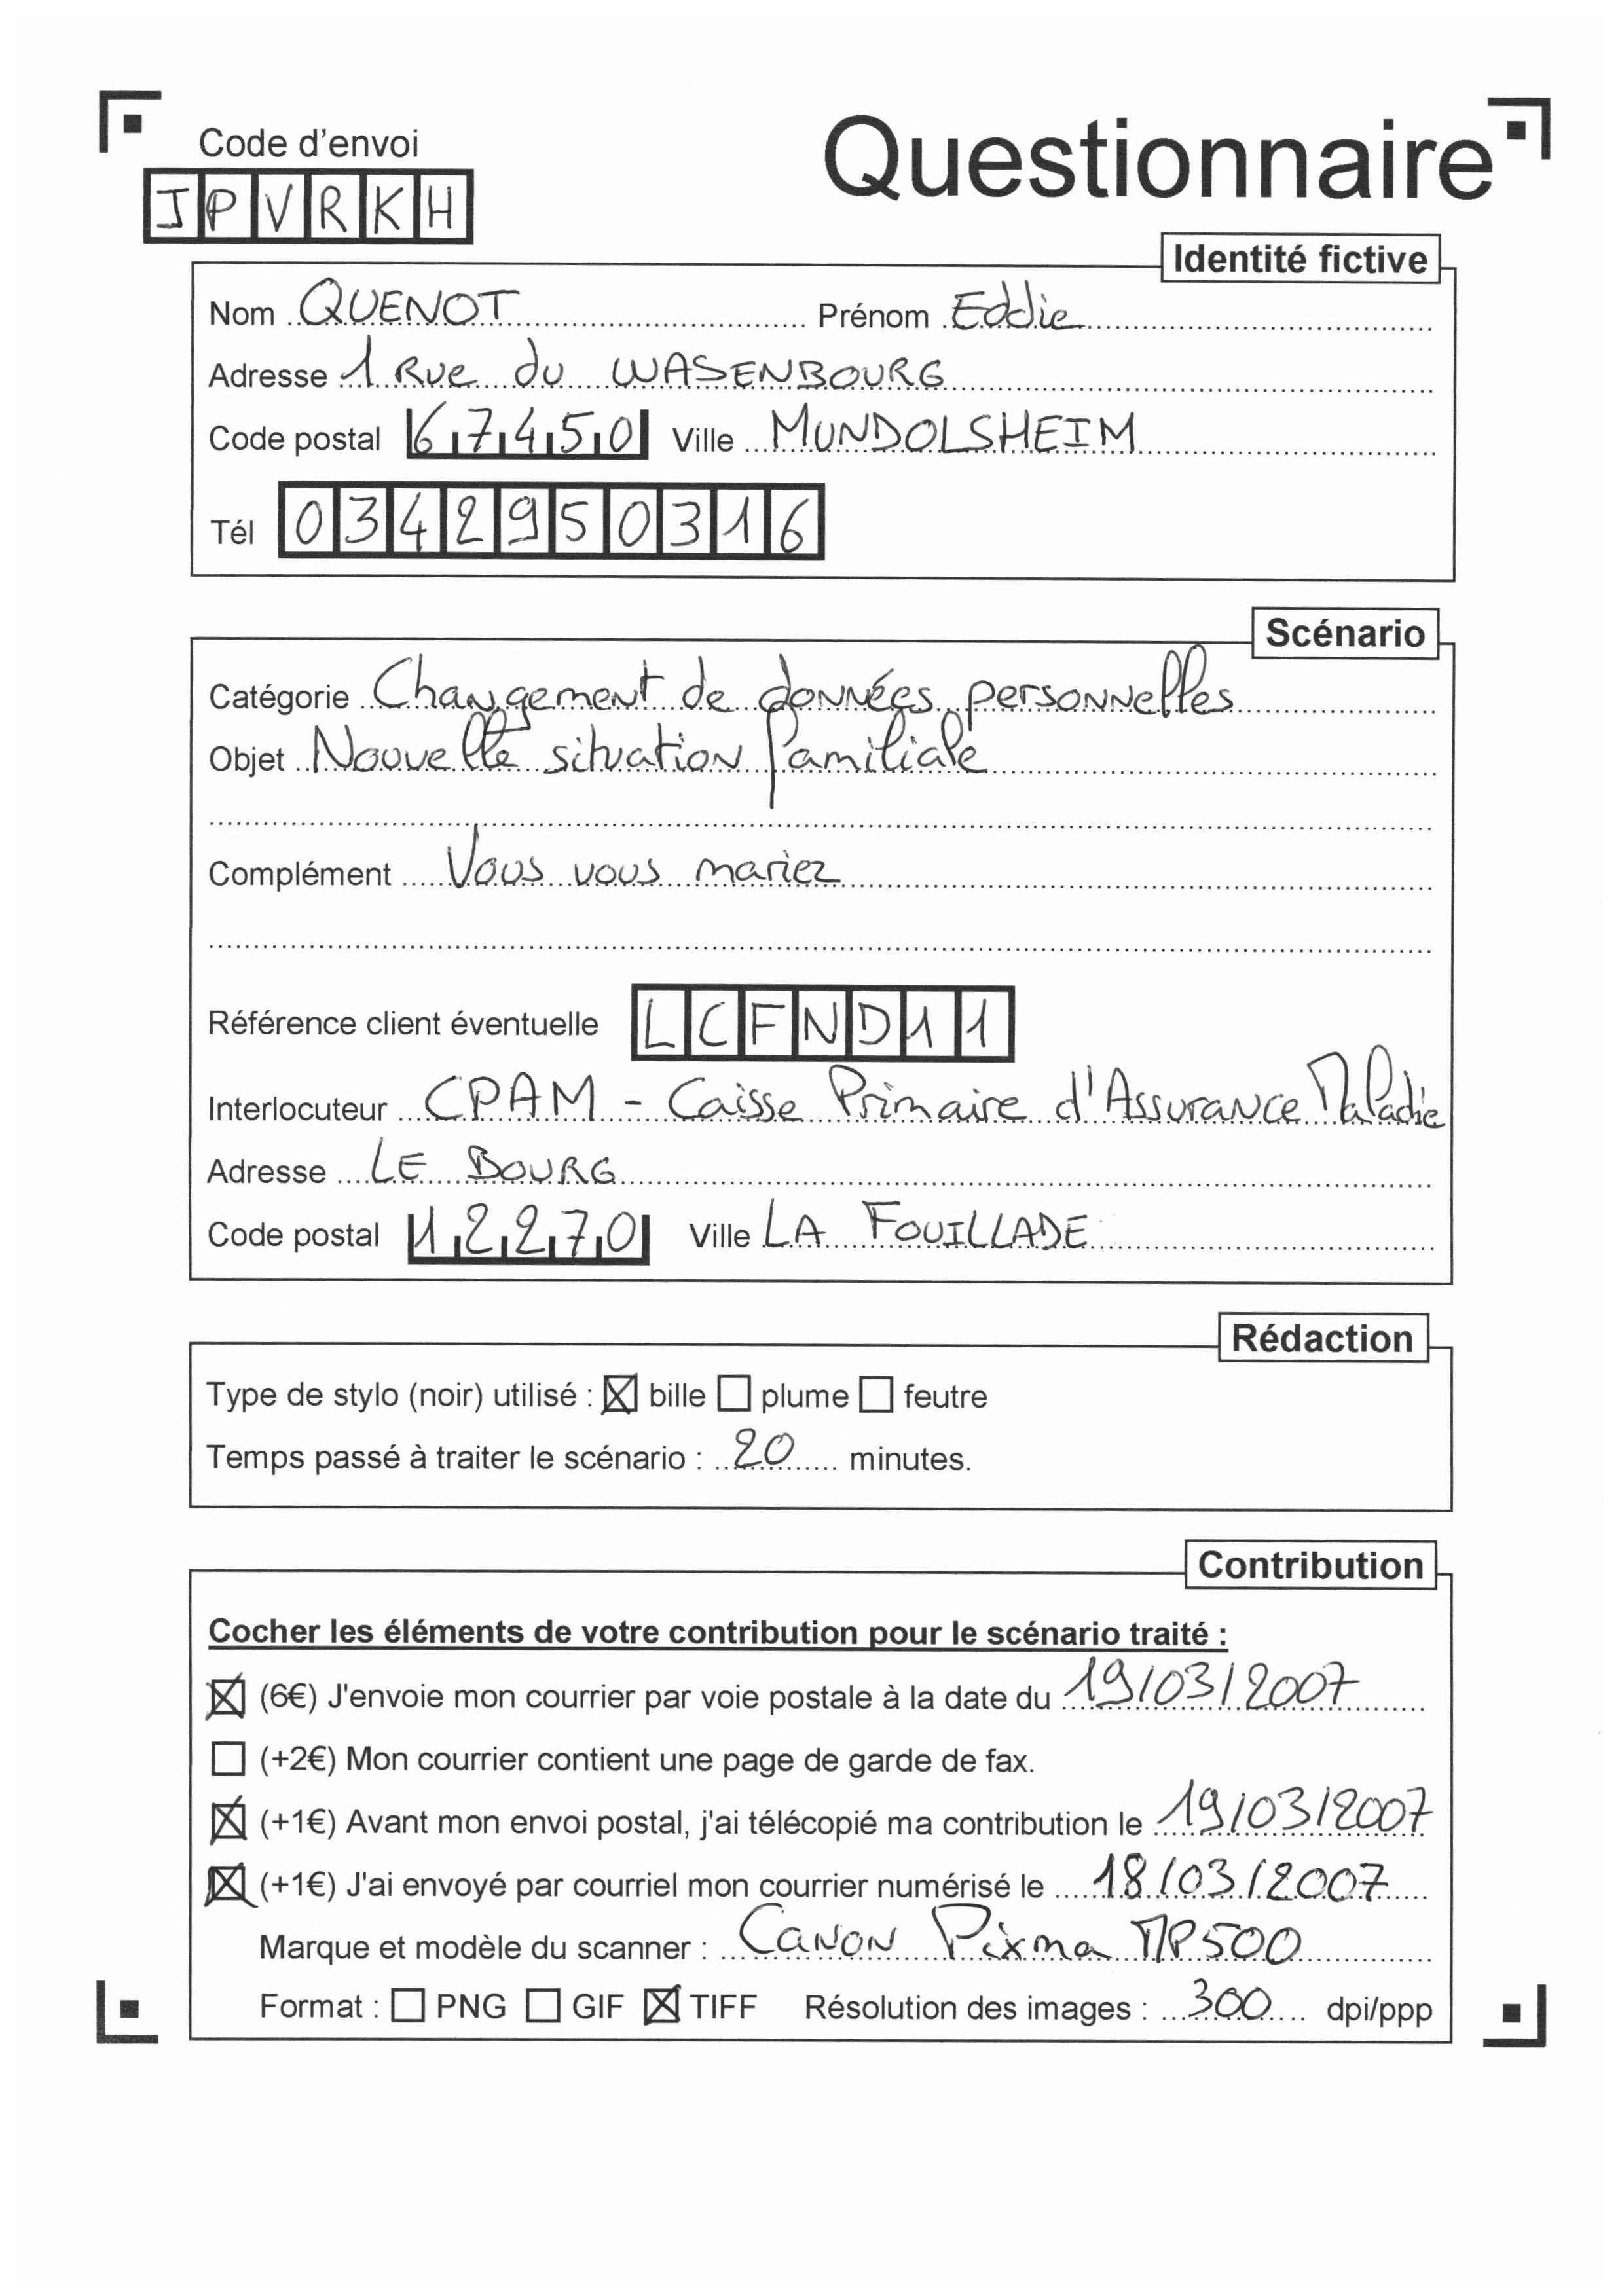 Code d'envoi
Questionnaire
JPVRKH
Identité fictive
Nom QUENOT Prénom Eddie
Adresse 1 Rue du WASENBOURG
Code postal 67450 Ville MUNDOLSHEIM
Tél 0342950316
Scénario
Catégorie Changement de données personnelles
Objet Nouvelle situation familiale
Complément Vous vous mariez
Référence client éventuelle LCFND11
Interlocuteur CPAM - Caisse Primaire d'Assurance Maladie
Adresse LE BOURG
Code postal 12270 Ville LA FOUILLADE
Rédaction
Type de stylo (noir) utilisé : ☒ bille ☐ plume ☐ feutre
Temps passé à traiter le scénario : 20 minutes.
Contribution
Cocher les éléments de votre contribution pour le scénario traité :
☒ (6€) J'envoie mon courrier par voie postale à la date du 19/03/2007
☐ (+2€) Mon courrier contient une page de garde de fax.
☒ (+1€) Avant mon envoi postal, j'ai télécopié ma contribution le 19/03/2007
☒ (+1€) J'ai envoyé par courriel mon courrier numérisé le 18/03/2007
Marque et modèle du scanner : CANON Pixma MP500
Format : ☐ PNG ☐ GIF ☒ TIFF Résolution des images : 300 dpi/ppp